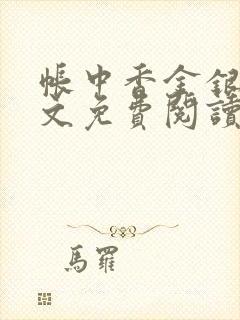 帳中香金銀
文免費閱讀
馬羅